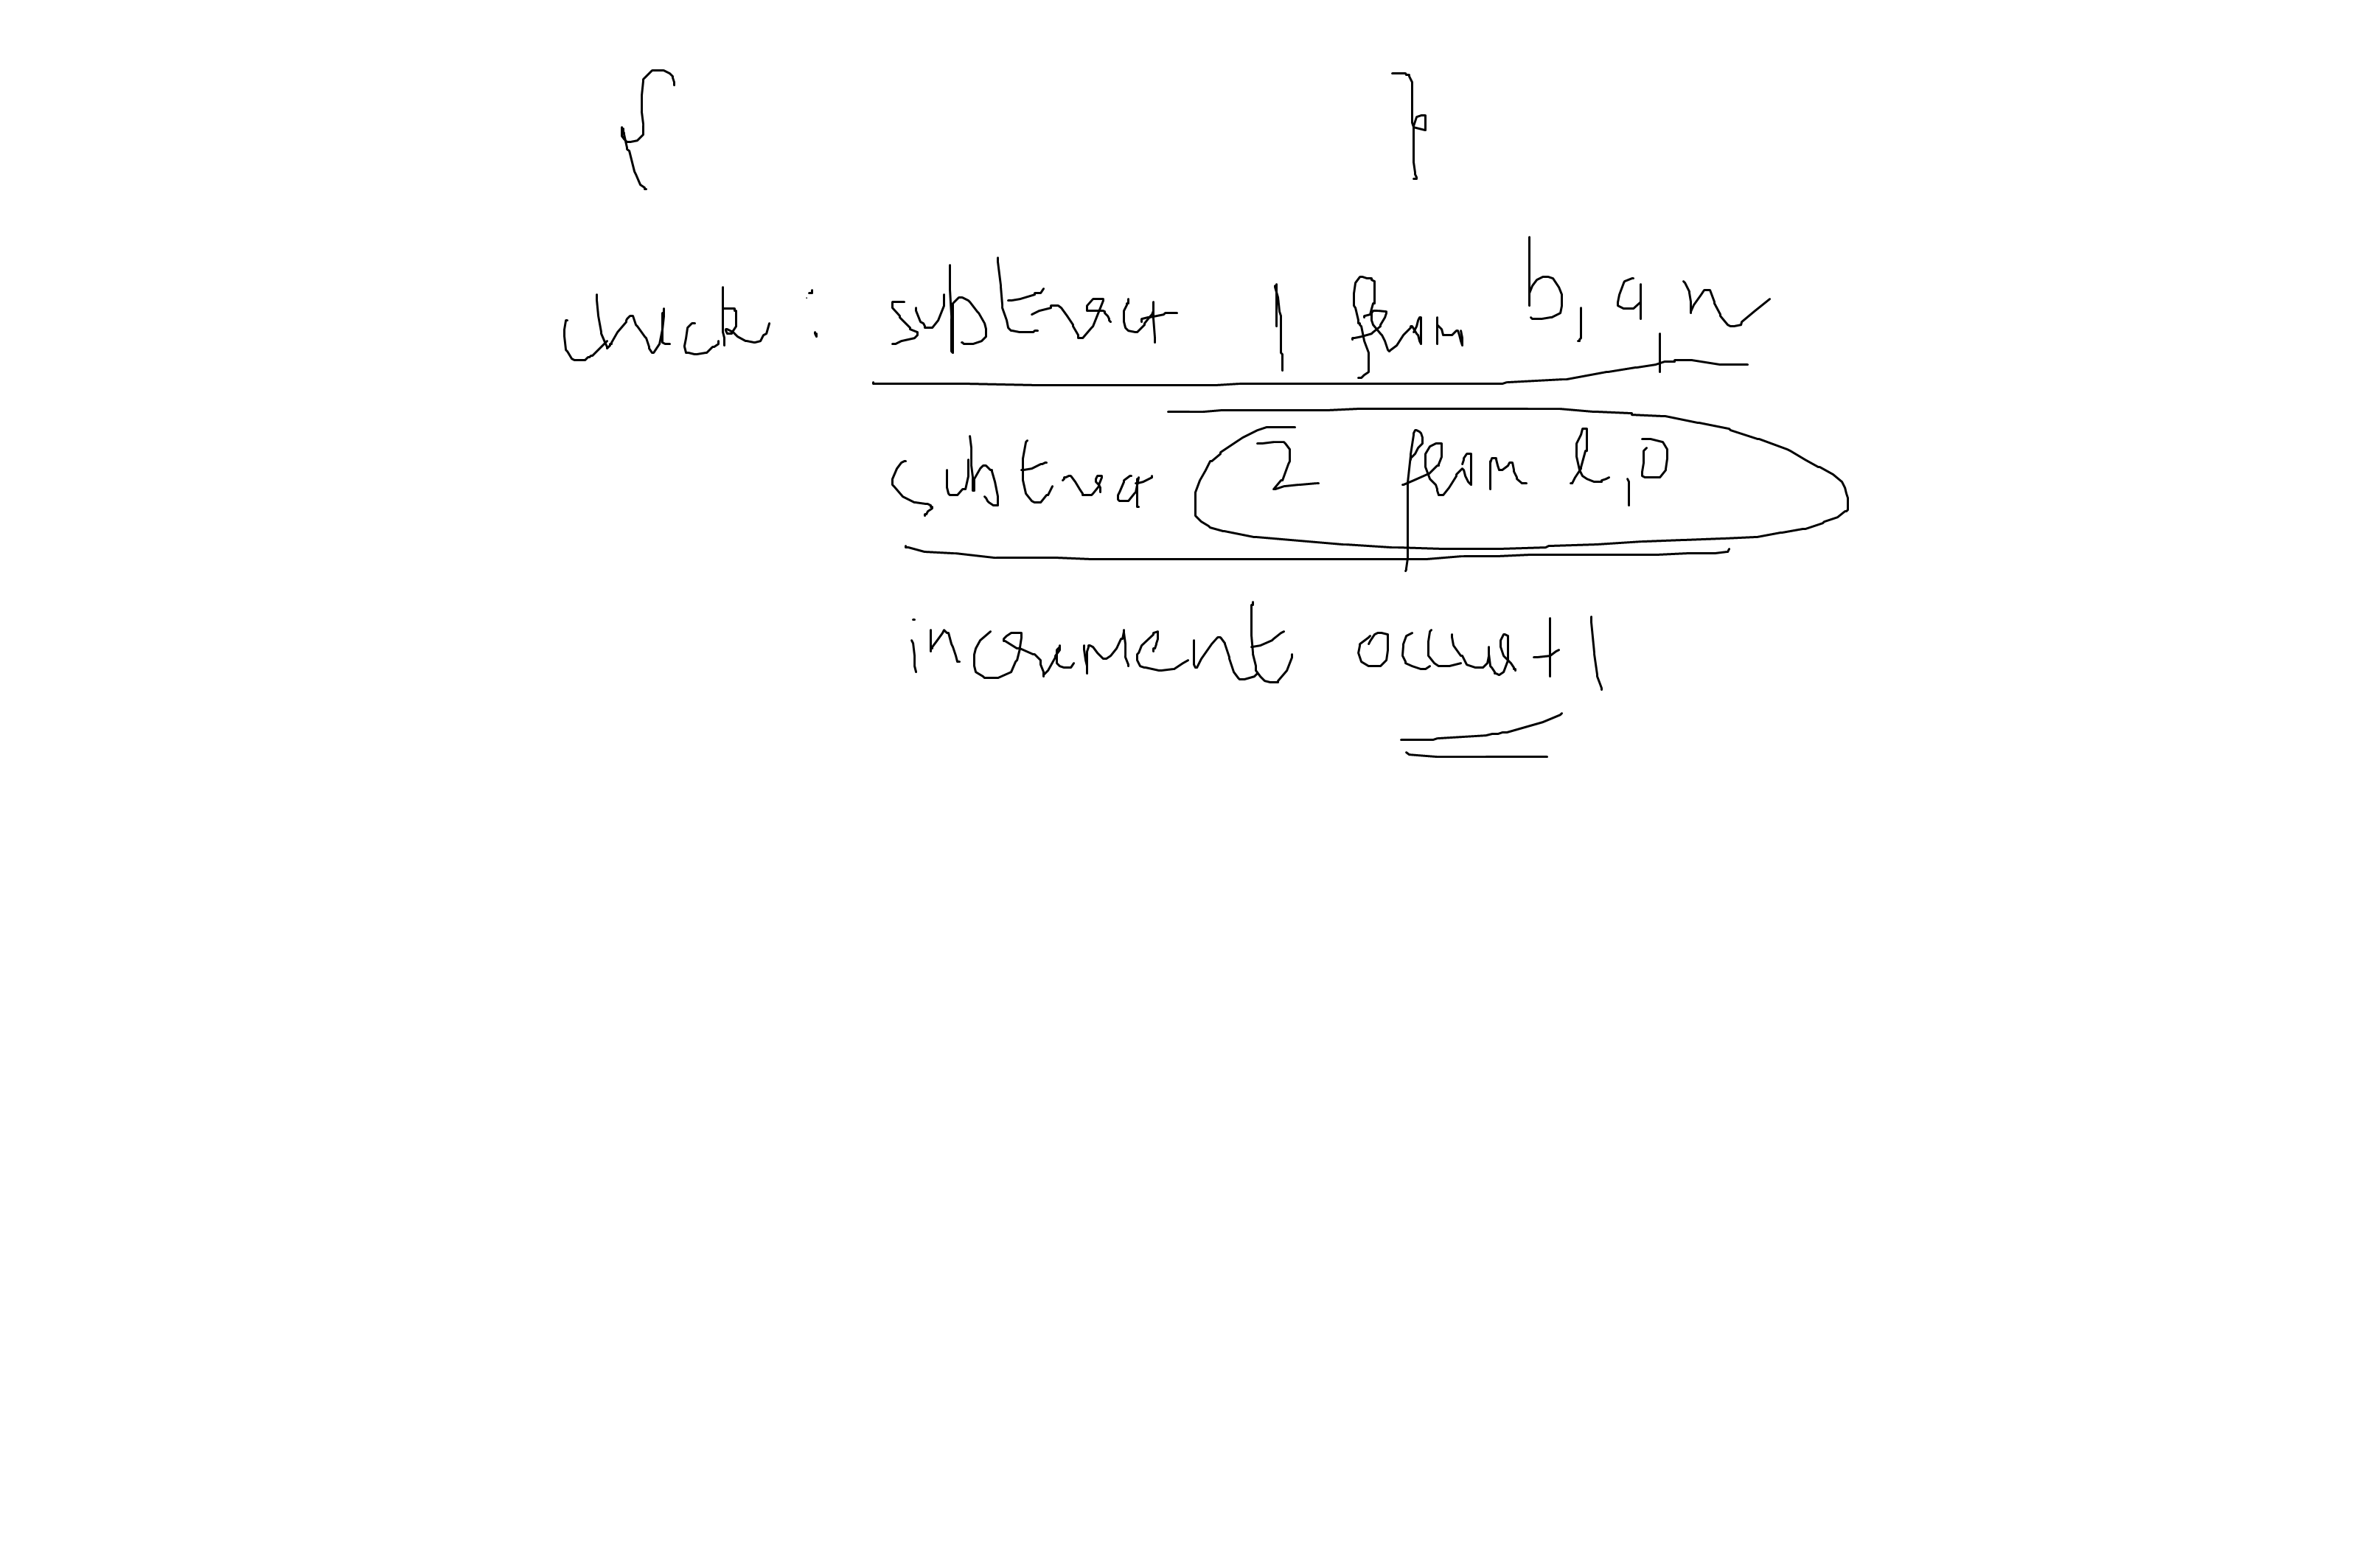 { }
check : subtract 1 from b, a, n
subtract 2 from l, o
increment occur + 1